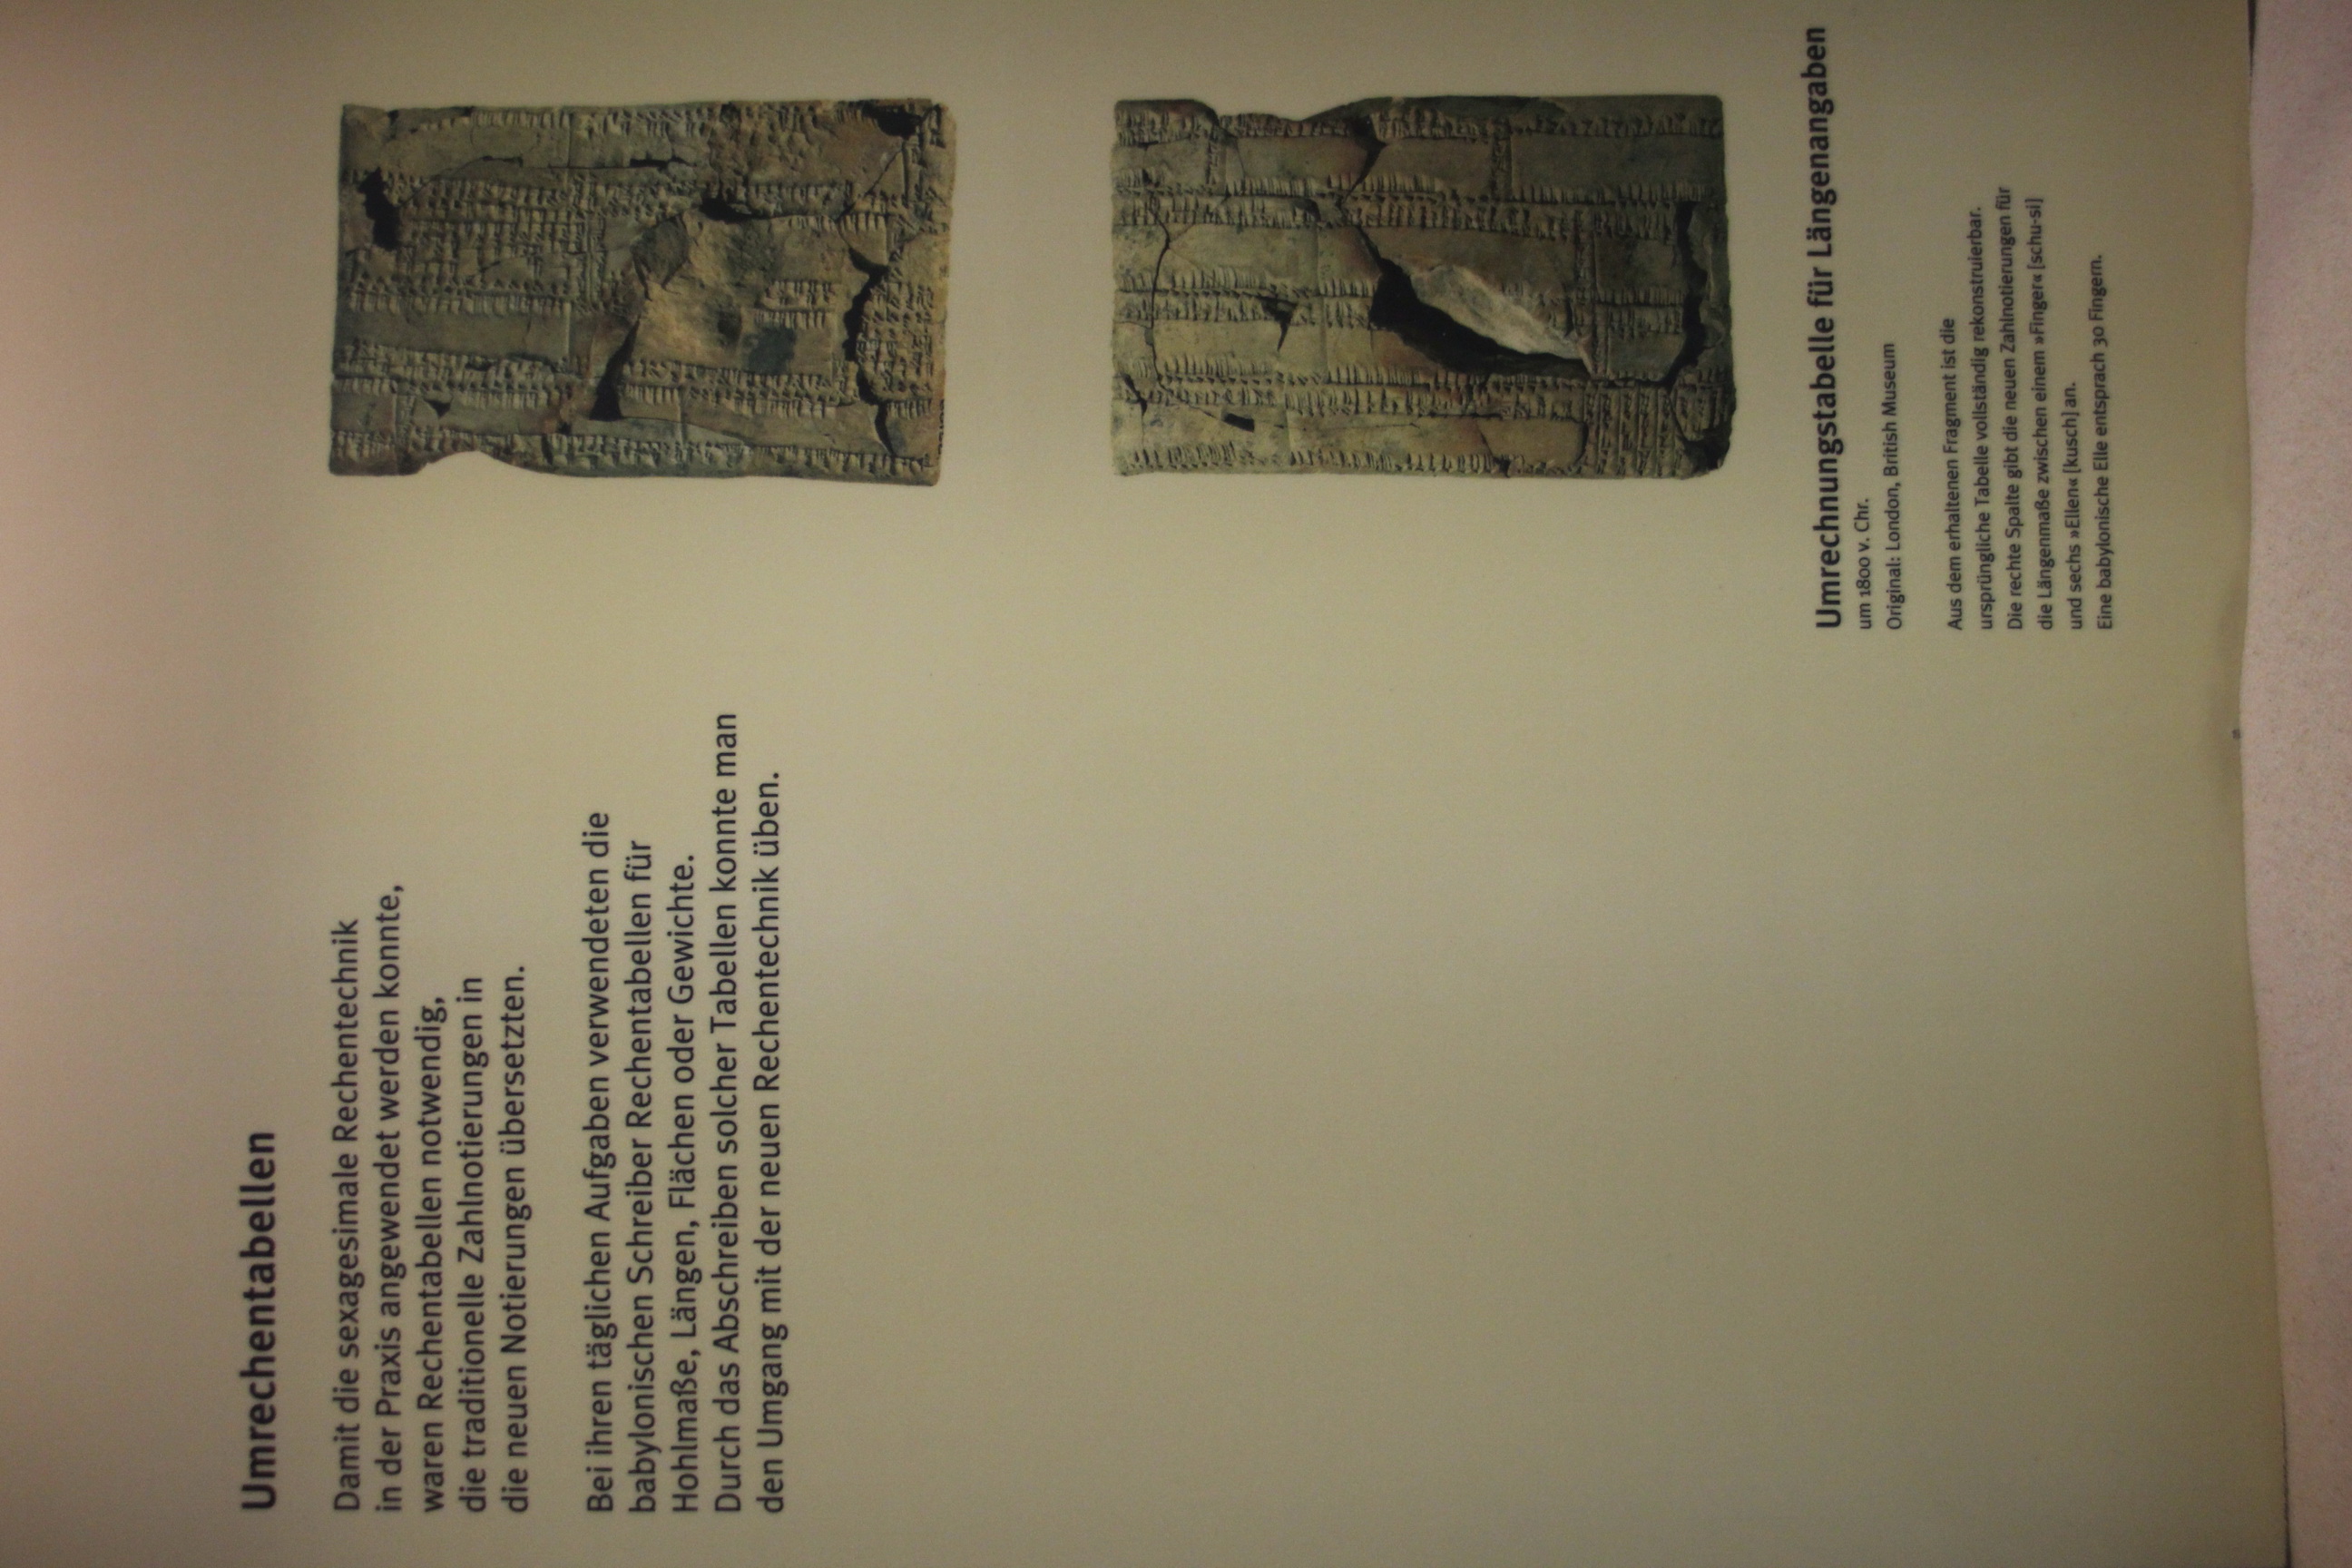 Umrechentabellen
Damit die sexagesimale Rechentechnik
in der Praxis angewendet werden konnte,
waren Rechentabellen notwendig,
die traditionelle Zahlnotierungen in
die neuen Notierungen übersetzten.
Bei ihren täglichen Aufgaben verwendeten die
babylonischen Schreiber Rechentabellen für
Hohlmaße, Längen, Flächen oder Gewichte.
Durch das Abschreiben solcher Tabellen konnte man
den Umgang mit der neuen Rechentechnik üben.
Umrechnungstabelle für Längenangaben
um 1800 v. Chr.
Original: London, British Museum
Aus dem erhaltenen Fragment ist die
ursprüngliche Tabelle vollständig rekonstruierbar.
Die rechte Spalte gibt die neuen Zahlnotierungen für
die Längenmaße zwischen einem »Finger« [schu-si]
und sechs »Ellen« [kusch] an.
Eine babylonische Elle entsprach 30 Fingern.